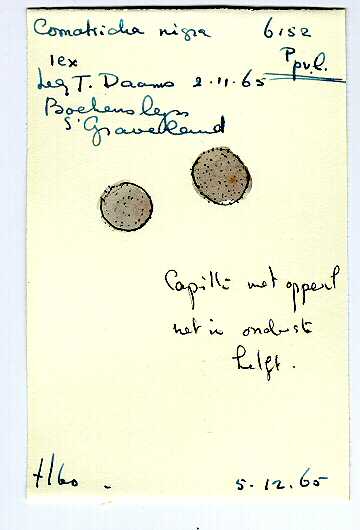 Comatricha nigra 6152
1ex P pv.b.
Leg T. Daams 2.11.65
Boekensleys
's Graveland
Capilli met opperl
net in onderste
helft.
5.12.65